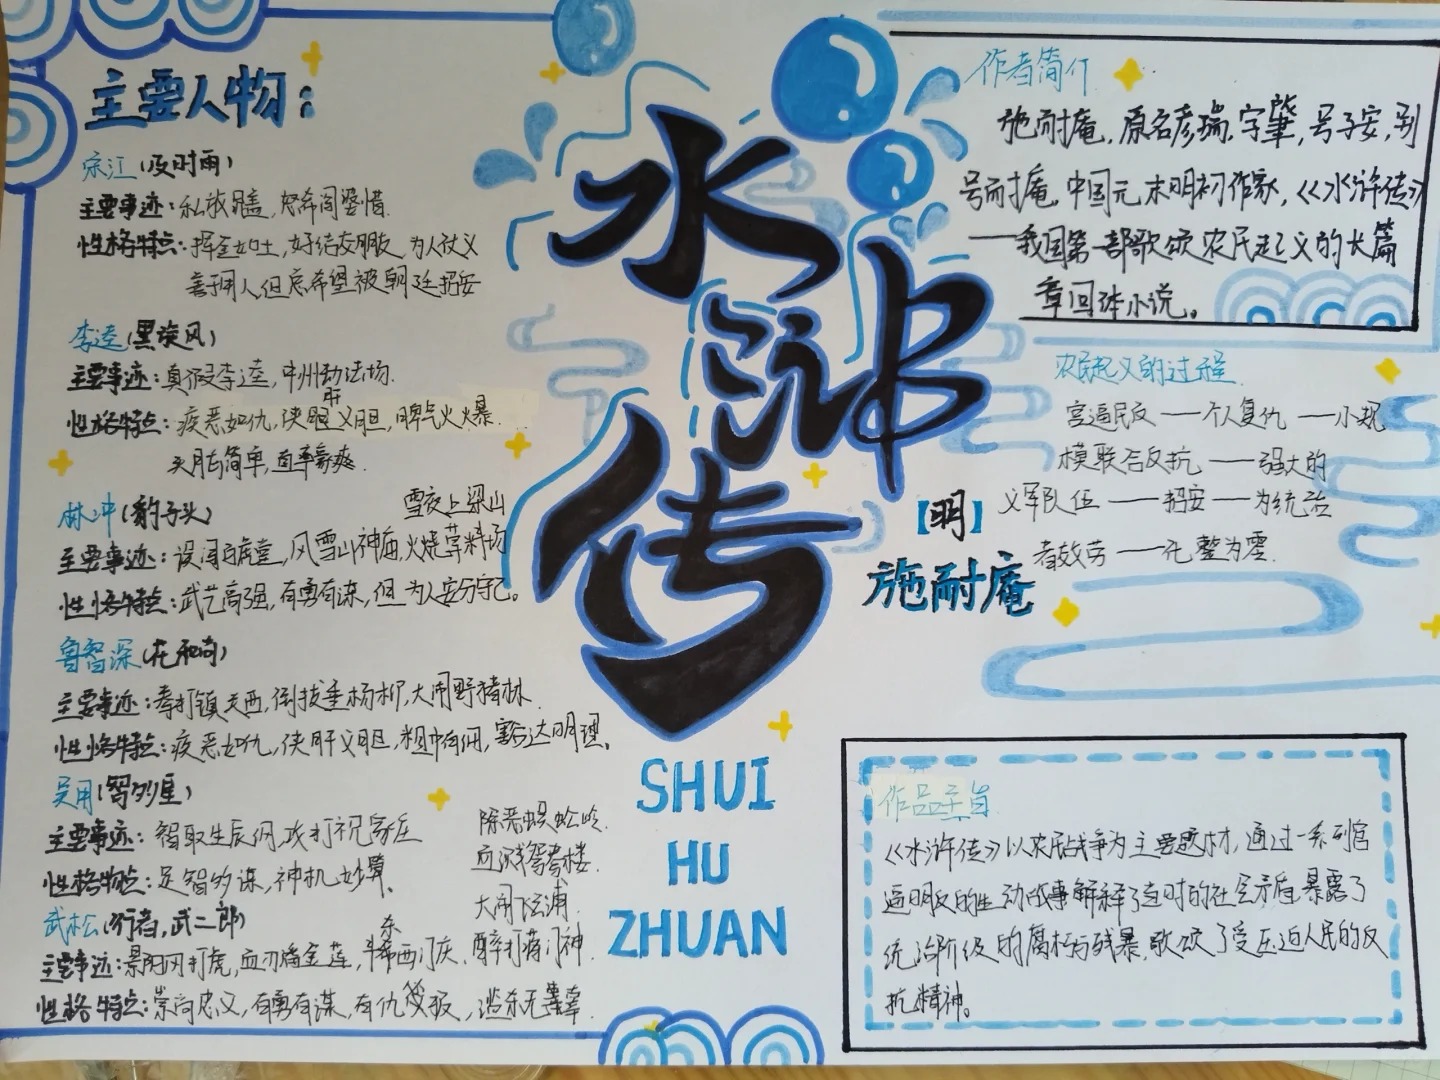 主要人物：
宋江(及时雨)
主要事迹：私放晁盖，怒杀阎婆惜.
性格特点：挥金如土，好结交朋友，为人仗义
善于用人但总希望被朝廷招安
李逵(黑旋风)
主要事迹：真假李逵，中州劫法场.
性格特点：疾恶如仇，侠肝义胆，脾气火爆.
头脑简单，直率豪爽.
林冲(豹子头)
雪夜上梁山
主要事迹：误闯白虎堂，风雪山神庙，火烧草料场
性格特点：武艺高强，有勇有谋，但为人安分守己。
鲁智深(花和尚)
主要事迹：拳打镇关西，倒拔垂杨柳，大闹野猪林.
性格特点：疾恶如仇，侠肝义胆，粗中有细，豁达明理。
吴用(智多星)
主要事迹：智取生辰纲，攻打祝家庄
性格特点：足智多谋，神机妙算、
武松(行者，武二郎)
除恶蜈蚣岭.
血溅鸳鸯楼.
大闹飞云浦.
主要事迹：景阳冈打虎，血刃潘金莲，斗杀西门庆，醉打蒋门神.
性格特点：崇尚忠义，有勇有谋，有仇必报，滥杀无辜.
水浒传
SHUI
HU
ZHUAN
【明】
施耐庵
作者简介
施耐庵，原名彦瑞，字肇，号子安，别
号耐庵，中国元末明初作家，《水浒传》
——我国第一部歌颂农民起义的长篇
章回体小说。
农民起义的过程
官逼民反——个人复仇——小规
模联合反抗——强大的
义军队伍——招安——为统治
者效劳——化整为零.
作品主旨
《水浒传》以农民战争为主要题材，通过一系列官
逼明反的生动故事解释了当时的社会矛盾，暴露了
统治阶级的腐朽与残暴，歌颂了受压迫人民的反
抗精神。